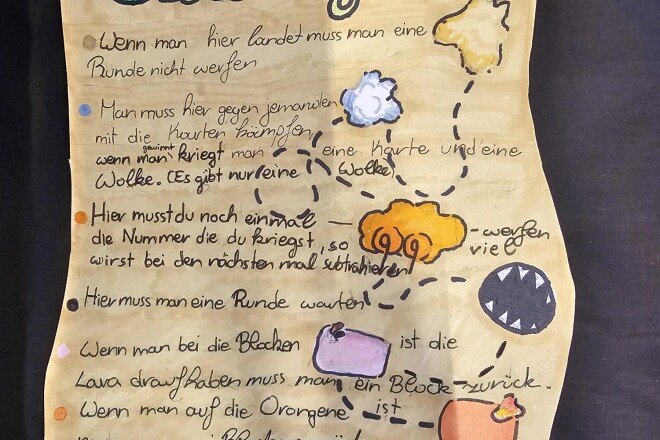 Wenn man hier landet muss man eine
Runde nicht werfen
Man muss hier gegen jemanden
mit die Karten kämpfen
wenn man gewinnt kriegt man eine Karte und eine
Wolke. (Es gibt nur eine Wolke)
Hier musst du noch einmal - werfen
die Nummer die du kriegst, so viel
wirst bei den nächsten mal subtrahieren
Hier muss man eine Runde warten
Wenn man bei die Blocken ist die
Lava drauf haben muss man ein Block zurück.
Wenn man auf die Orangene ist